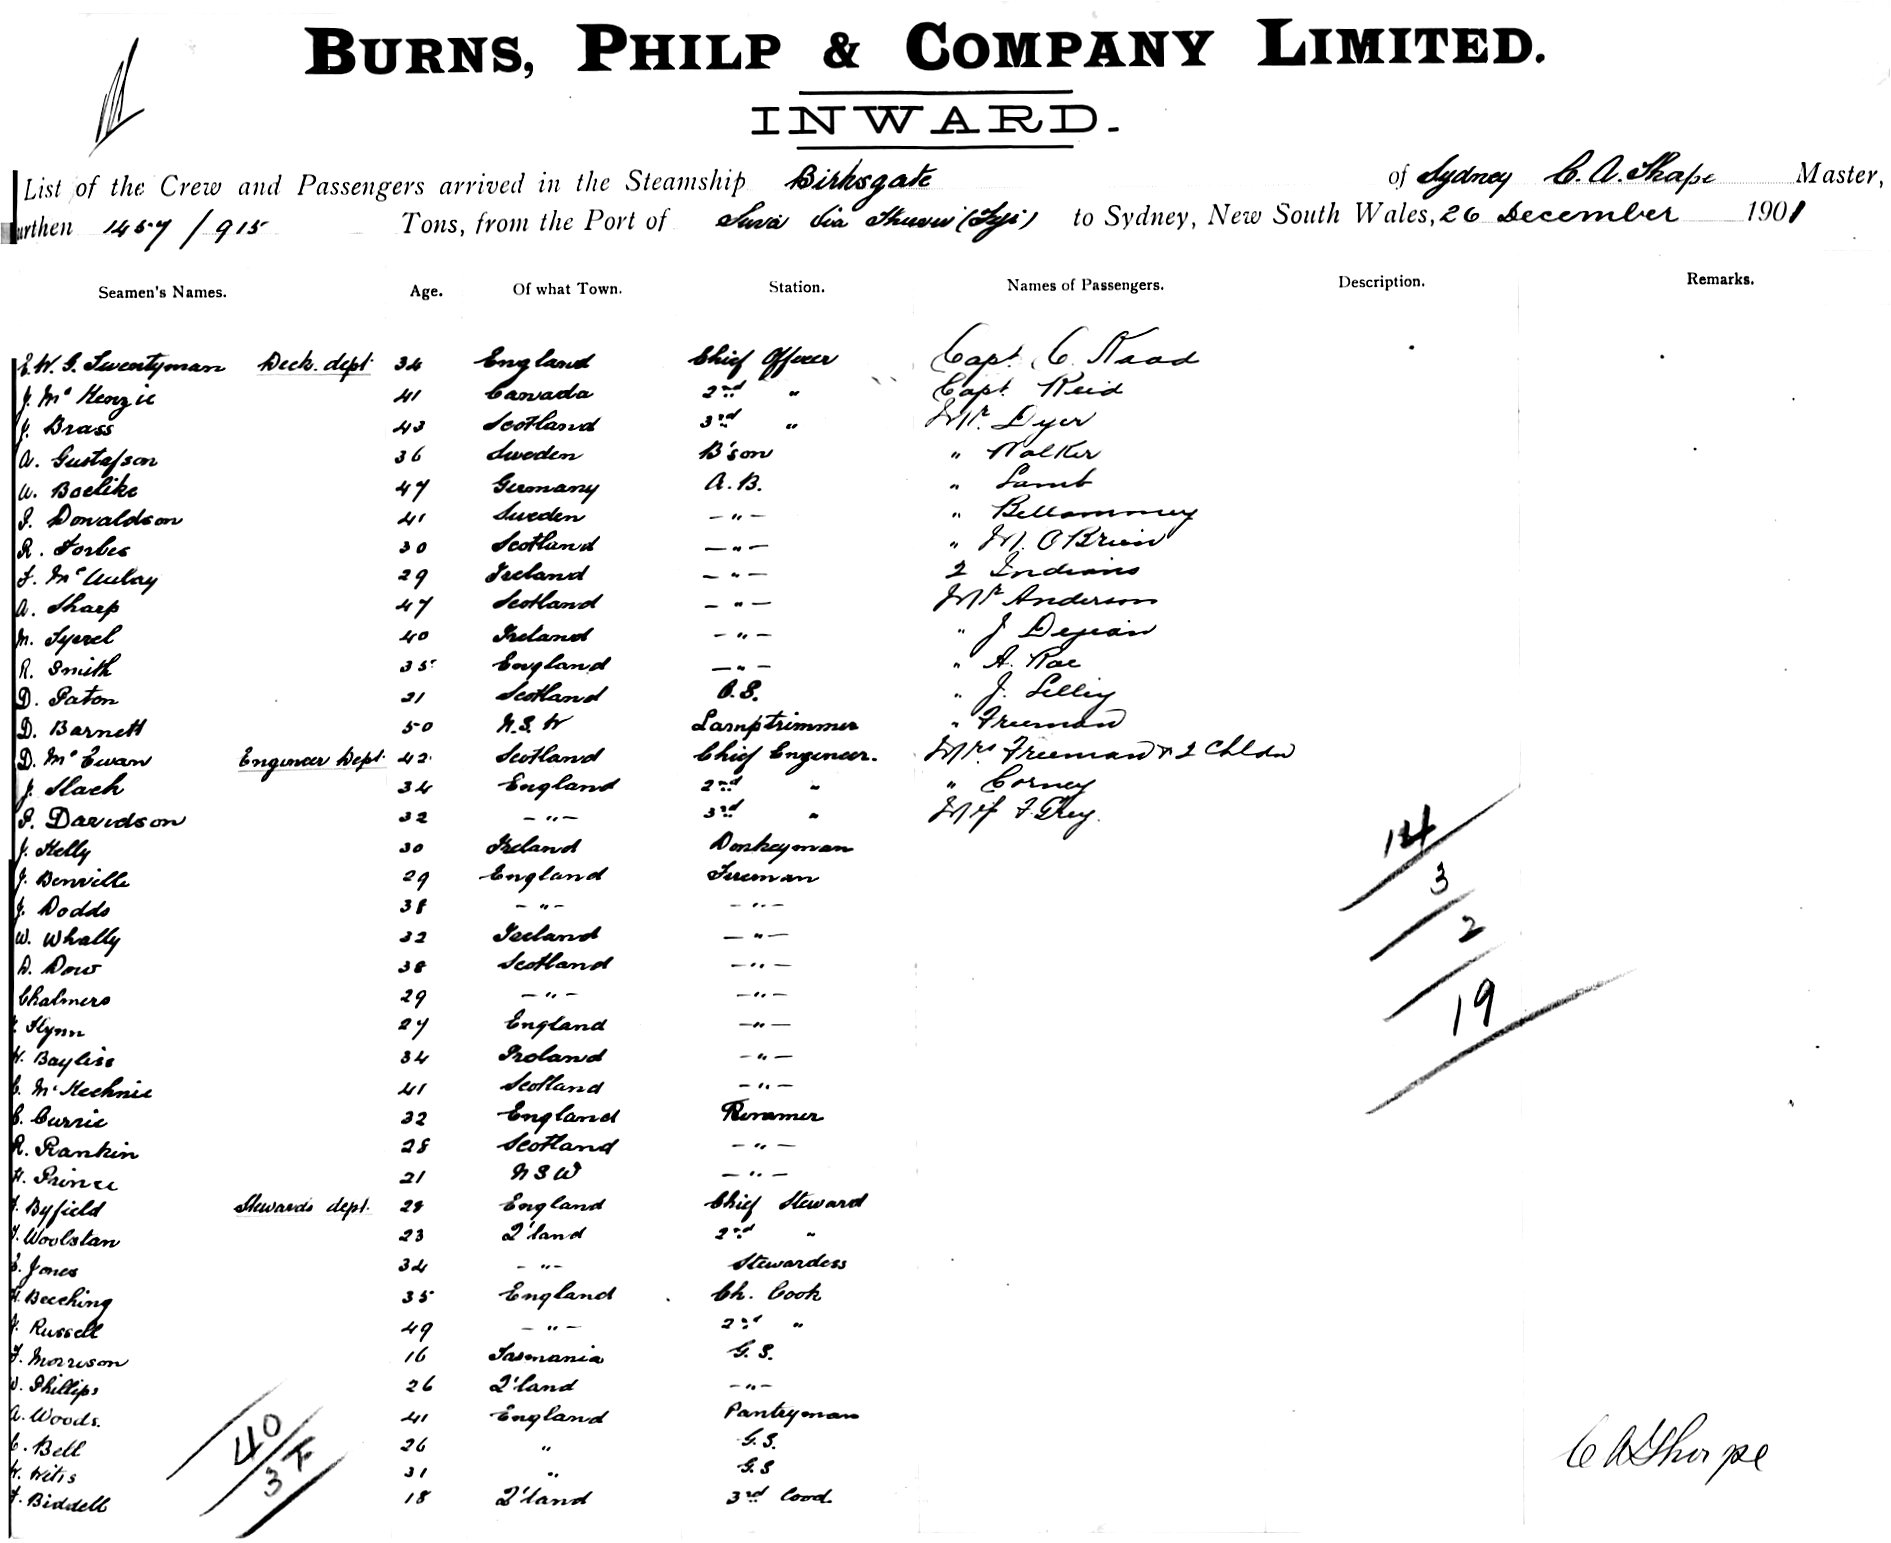 BURNS, PHILP & COMPANY LIMITED.
INWARD.
List of the Crew and Passengers arrived in the Steamship Birksgate of Sydney C. A. Sharpe Master,
urthen 1457 / 915 Tons, from the Port of Suva via (Fiji) to Sydney, New South Wales, 26 December 1901
Seamen's Names. Age. Of what Town. Station. Names of Passengers. Description. Remarks.
E. W. G. Twentyman Deck. dept 34 England Chief Officer Capt. C. Kaad
J. McKenzie 41 Canada 2nd " Capt. Reid
J. Brass 43 Scotland 3rd " Mr. Dyer
A. Gustafson 36 Sweden B'son " Walker
A. Boelike 47 Germany A.B. " Lamb
P. Donaldson 41 Sweden -"- " Bellammey
R. Forbes 30 Scotland -"- " M. O'Brien
F. McAulay 29 Ireland -"- 2 Indians
A. Sharp 47 Scotland -"- Mr Anderson
M. Tyrrel 40 Ireland -"- " J Dejean
R. Smith 35 England -"- " A. Rae
D. Paton 21 Scotland O.S. " J. Lelliy
D. Barnett 50 N.S.W Lamptrimmer " Freeman
D. McEwan Engineer Dept. 42 Scotland Chief Engineer. Mrs Freeman & 2 Chldn
J. Slack 34 England 2nd " " Corney
P. Davidson 32 -"- 3rd " Miss F. Grey.
J. Kelly 30 Ireland Donkeyman
J. Benville 29 England Fireman
J. Dodds 38 -"- -"-
W. Whally 32 Ireland -"-
D. Dow 38 Scotland -"-
Chalmers 29 -"- -"-
Flynn 27 England -"-
H. Bayliss 34 Ireland -"-
C. McKechnie 41 Scotland -"-
C. Currie 32 England Trimmer
R. Rankin 28 Scotland -"-
H. Prince 21 NSW -"-
F. Byfield Stewards dept. 28 England Chief Steward
T. Woolstan 23 Q'land 2nd "
E. Jones 34 -"- Stewardess
H. Beeching 35 England Ch. Cook
J. Russell 49 -"- 2nd "
F. Morrison 16 Tasmania G.S.
W. Phillips 26 Q'land -"-
A. Woods. 41 England Pantryman
C. Bell 26 " G.S.
31 " G.S
F. Biddell 18 Q'land 3rd Cook.
14
3
2
19
40
C A Sharpe